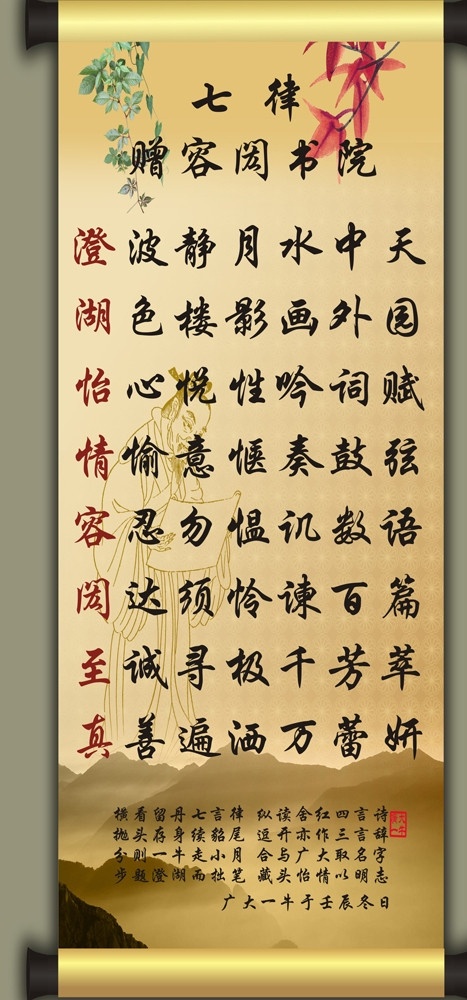 七律
赠容闳书院
澄波静月水中天
湖色楼影画外园
怡心悦性吟词赋
情愉意惬奏鼓弦
容忍勿愠讥数语
闳达须怜谏百篇
至诚寻极千芳萃
真善遍洒万蕾妍
横看留丹七言律 纵读舍红四言诗
抛头存身续貂尾 逗开亦作三言辞
分则一牛走小月 合与广大取名字
步题澄湖而拙笔 藏头怡情以明志
广大一牛于壬辰冬日